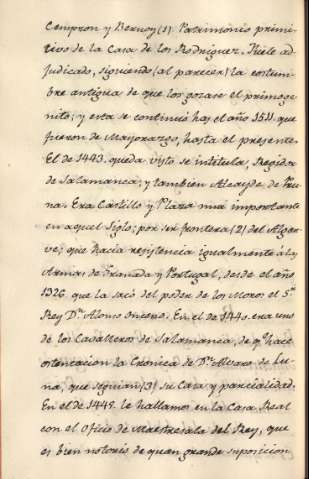 Cempron y Bernoy (1) Patrimonio primi-
tivo de la Casa de los Rodriguez. Fuele ad-
judicado, siguiendo (al parecer) la costum-
bre antigua de que los gozase el primoge-
nito; y esta se continuó has. el año 1511. que
fueron de Mayorazgo, hasta el presente.
El de 1443. queda visto se intitula, Regidor
de Salamanca; y tambien Alcayde de
na. Era Castillo y Plaza mui importante
en aquel Siglo; por ser frontera (2) del Algar-
ve; que hacia resistencia igualmente á las
Armas de Granada y Portugal, desde el año
1326. que la sacó del poder de los Moros el S.or
Rey D.n Alonso Onceno. En el de 1440. era uno
de los Cavalleros de Salamanca, de q.e hace
ostentacion la Crónica de D.n Alvaro de Lu-
na, que seguian (3) su Casa y parcialidad.
En el de 1445. le hallamos en la Casa Real
con el Oficio de Maestresala del Rey, que
es bien notorio de quan grande suposicion